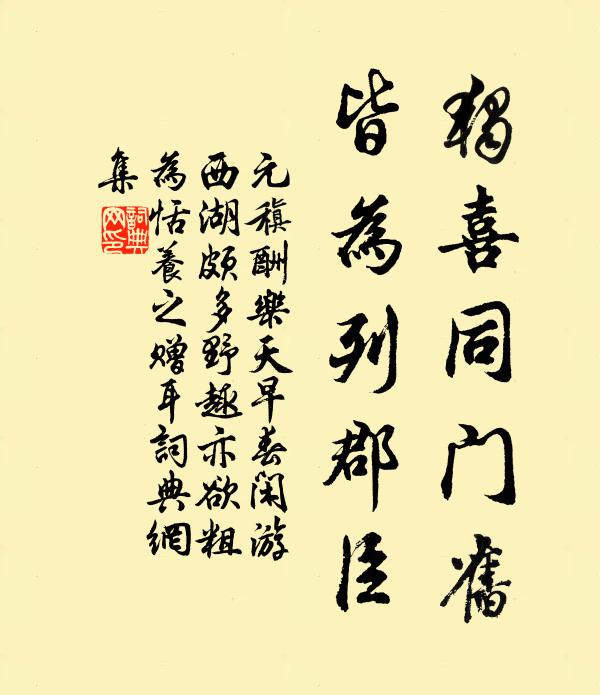 獨喜同门舊
皆為列郡臣
元稹酬樂天早春閑游
西湖頗多野趣亦欲粗
為恬養之贈耳詞典網
集
詞典
网印